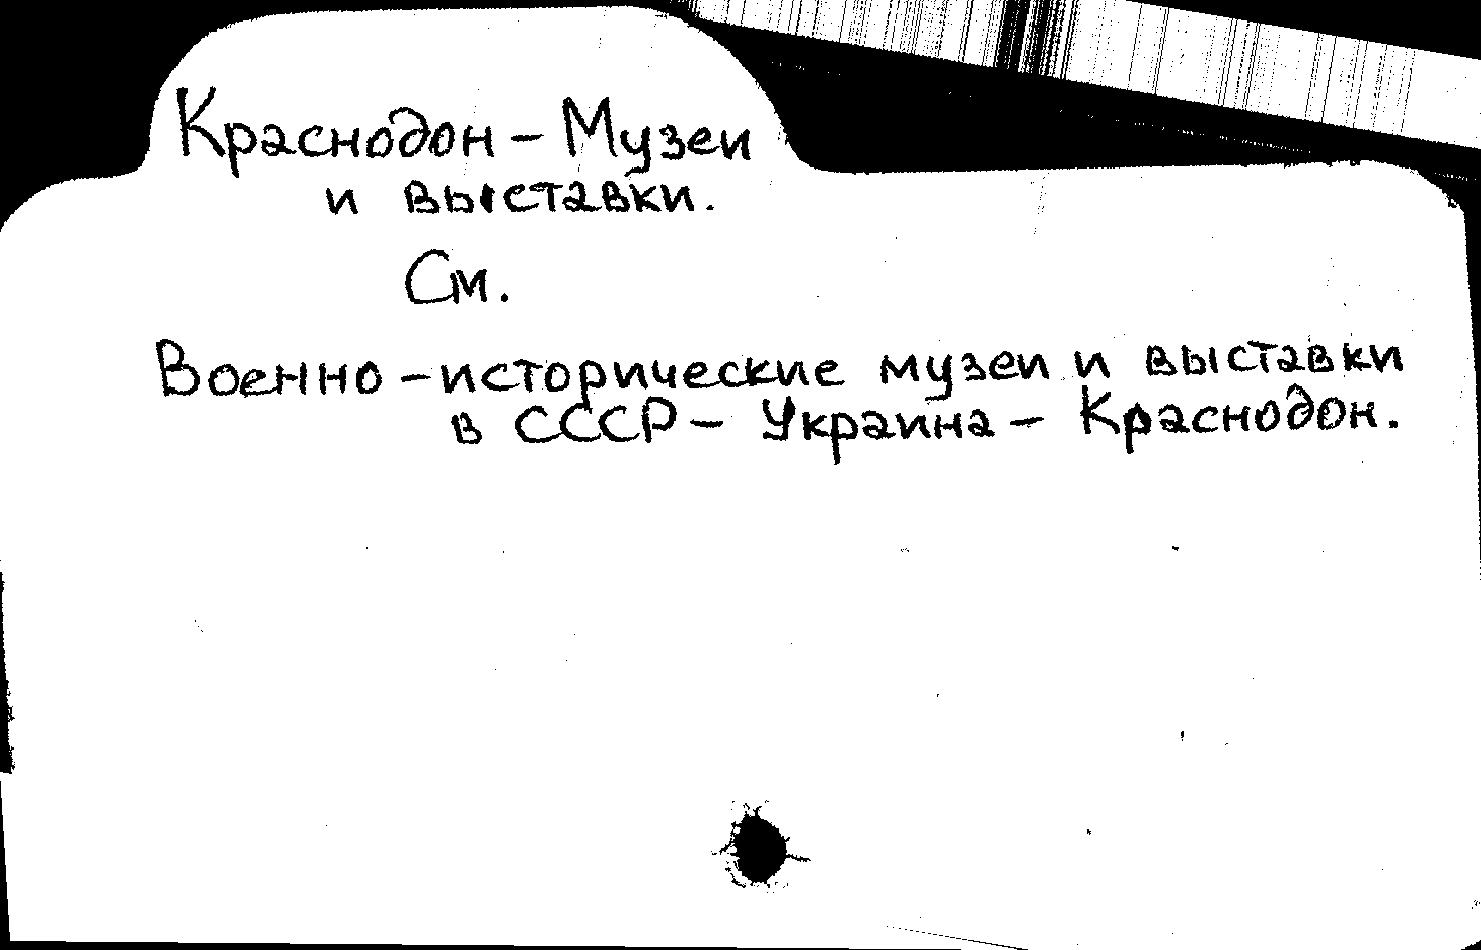 Краснодон – Музеи
и выставки.
См.
Военно-исторические музеи и выставки
в СССР – Украина – Краснодон.